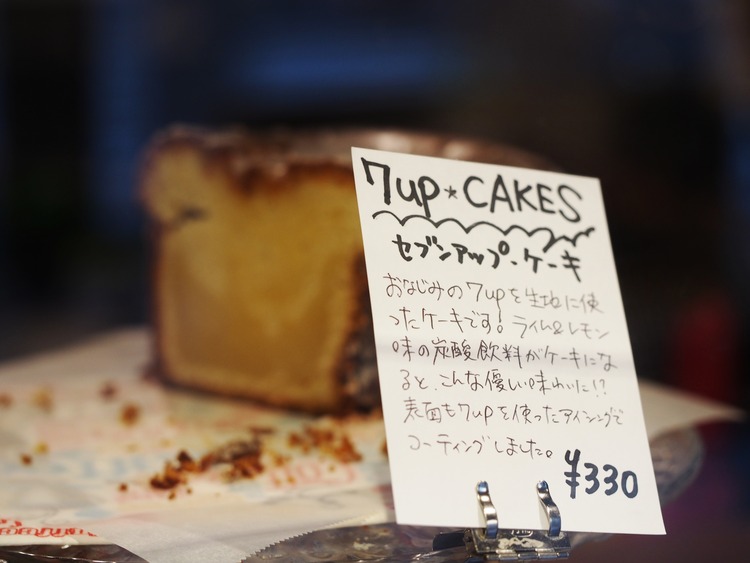 7up★CAKES
セブンアップ・ケーキ
おなじみの7upを生地に使
ったケーキです！ライム&レモン
味の炭酸飲料がケーキにな
ると、こんな優しい味わいに！？
表面も7upを使ったアイシングで
コーティングしました。
¥330